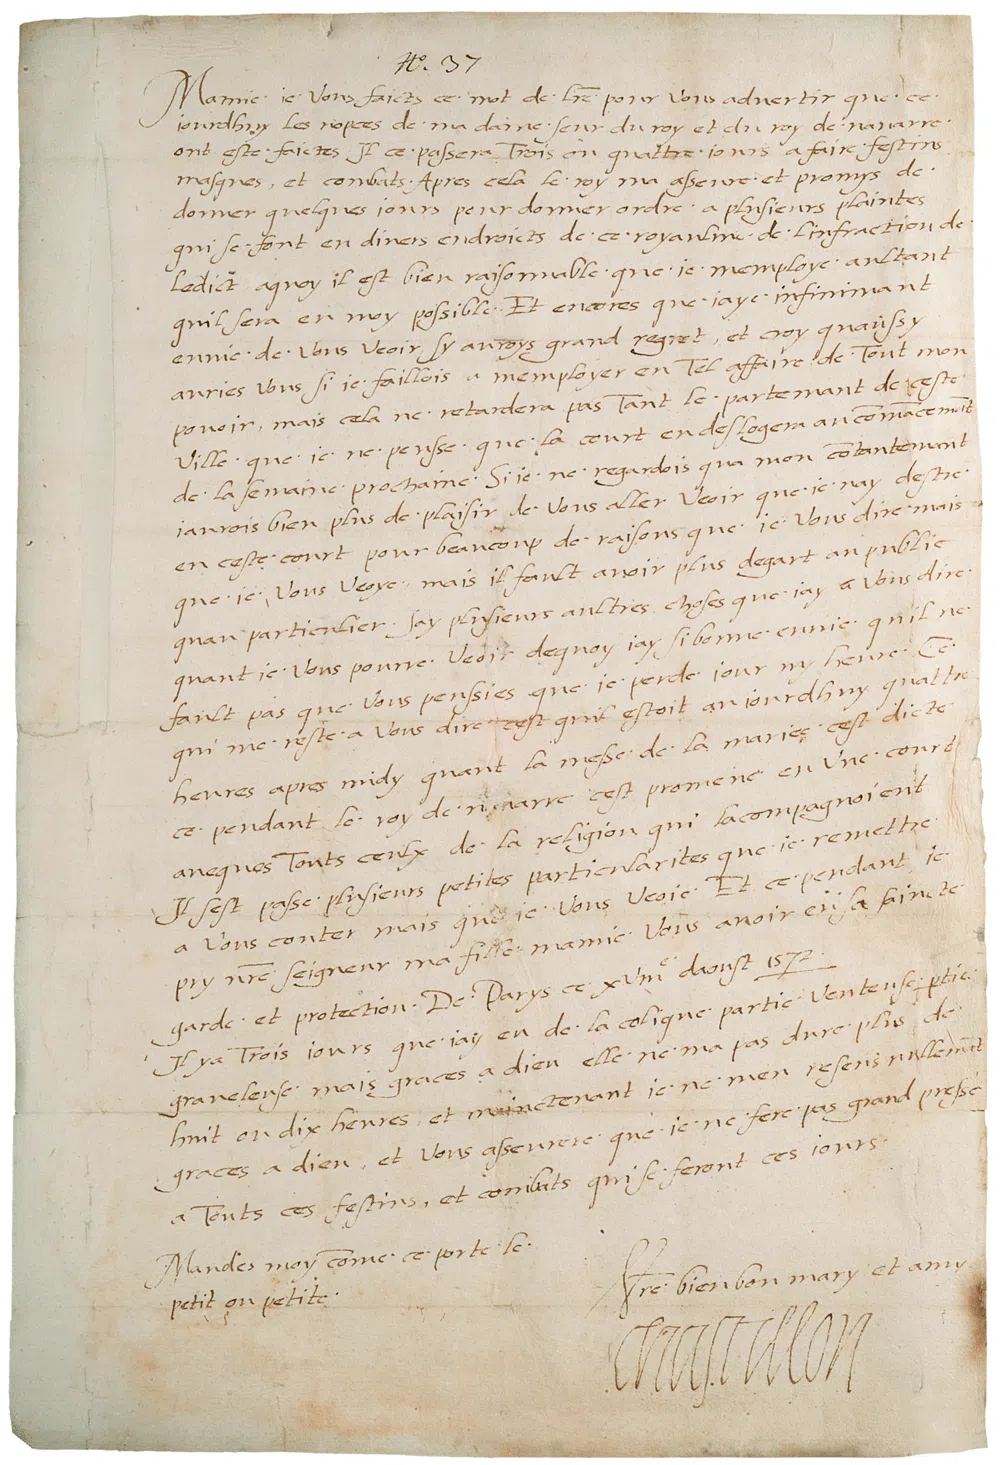 No. 37
Mamie ie vous faicts ce mot de lre pour vous advertir que ce
iourdhuy les nopces de ma dame seur du roy et du roy de navarre
ont este faictes Il ce passera Trois ou quattre iours a faire festins
masques, et combats. Apres cela le roy ma asseure et promys de
donner quelques iours pour donner ordre a plusieurs plaintes
qui se font en divers endroicts de ce royaulme de linfraction de
ledict aquoy il est bien raisonnable que ie memploye aultant
quil sera en moy possible. Et encores que iaye infinimant
envie de vous veoir sy auroys grand regret, et croy quaussy
auries vous si ie faillois a memployer en Tel affaire de Tout mon
pouoir, mais cela ne retardera pas Tant le partemant de ceste
ville que ie ne pense que la court en deslogera au cōmācemāt
de la semaine prochaine. Si ie ne regardois qua mon cōtantemant
iaurois bien plus de plaisir de vous aller veoir que ie nay destre
en ceste court pour beaucoup de raisons que ie vous dire mais
que ie vous veoye, mais il fault avoir plus degart au public
quau particulier. Jay plusieurs aultres choses que iay a vous dire
quant ie vous pourre veoir dequoy iay si bonne envie quil ne
fault pas que vous penssies que ie perde iour ny heure. Ce
qui me reste a vous dire cest quil estoit au iourdhuy quattre
heures apres midy quant la messe de la mariee cest dicte
ce pendant le roy de navarre cest promene en une court
aveques Touts ceulx de la religion qui lacompagnoient
Il sest passe plusieurs petites particularites que ie remettre
a vous conter mais que ie vous veoie. Et ce pendant ie
pry nre seigneur ma fille mamie vous avoir en sa saincte
garde et protection. De Parys ce xviiie daoust 1572.
Il ya Trois iours que iay eu de la colique partie venteuse ptie
graveleuse mais graces a dieu elle ne ma pas dure plus de
huit ou dix heures, et mainctenant ie ne men resens nullemāt
graces a dieu, et vous asseurere que ie ne fere pas grand presse
a Touts ces festins, et combats qui se feront ces iours.
Mandes moy cōme ce porte le
petit ou petite.
Vre bien bon mary et amy
Chastillon